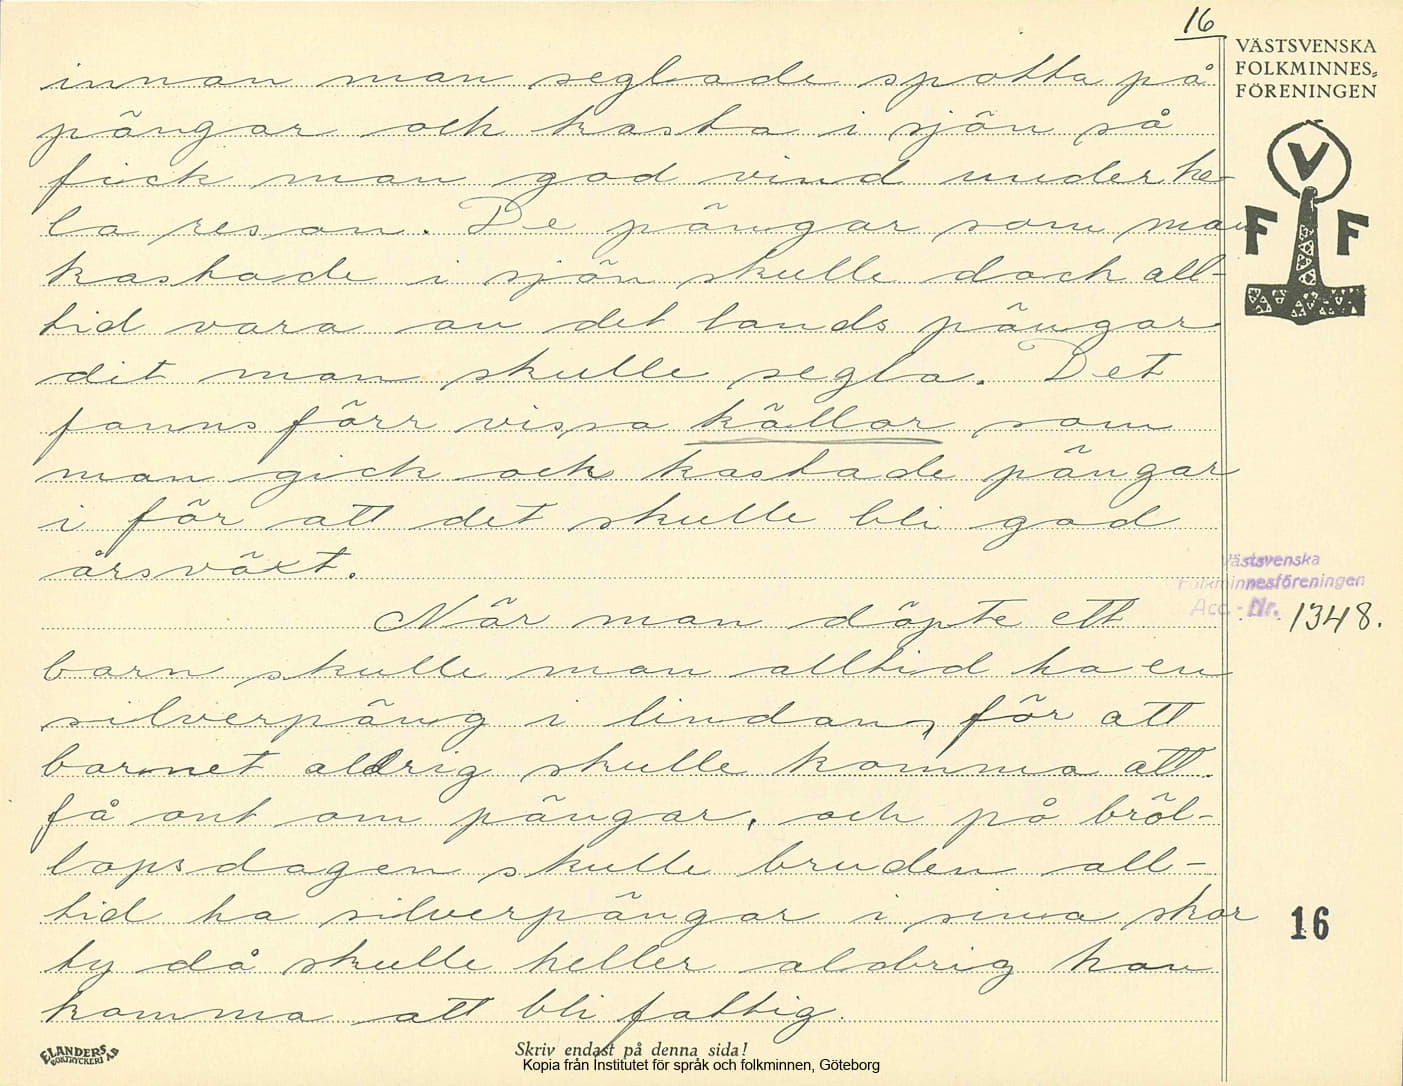 16
VÄSTSVENSKA
FOLKMINNES-
FÖRENINGEN
V
F F
innan man seglade spotta på
pängar och kasta i sjön så
fick man god vind under he-
la resan. De pängar som man
kastade i sjön skulle doch all-
tid vara au det lands pängar
dit man skulle segla. Det
fanns förr vissa källor som
man gick och kastade pängar
i för att det skulle bli god
årsväxt.
Västsvenska
Folkminnesföreningen
Acc.-Nr. 1348.
När man döpte ett
barn skulle man alltid ha en
silverpäng i lindan, för att
barnet aldrig skulle komma att
få ont om pängar, och på bröl-
lopsdagen skulle bruden all-
tid ha silverpängar i sina skor
ty då skulle heller aldrig hon
komma att bli fattig.
16
ELANDERS
BOKTRYCKERI AB
Skriv endast på denna sida!
Kopia från Institutet för språk och folkminnen, Göteborg